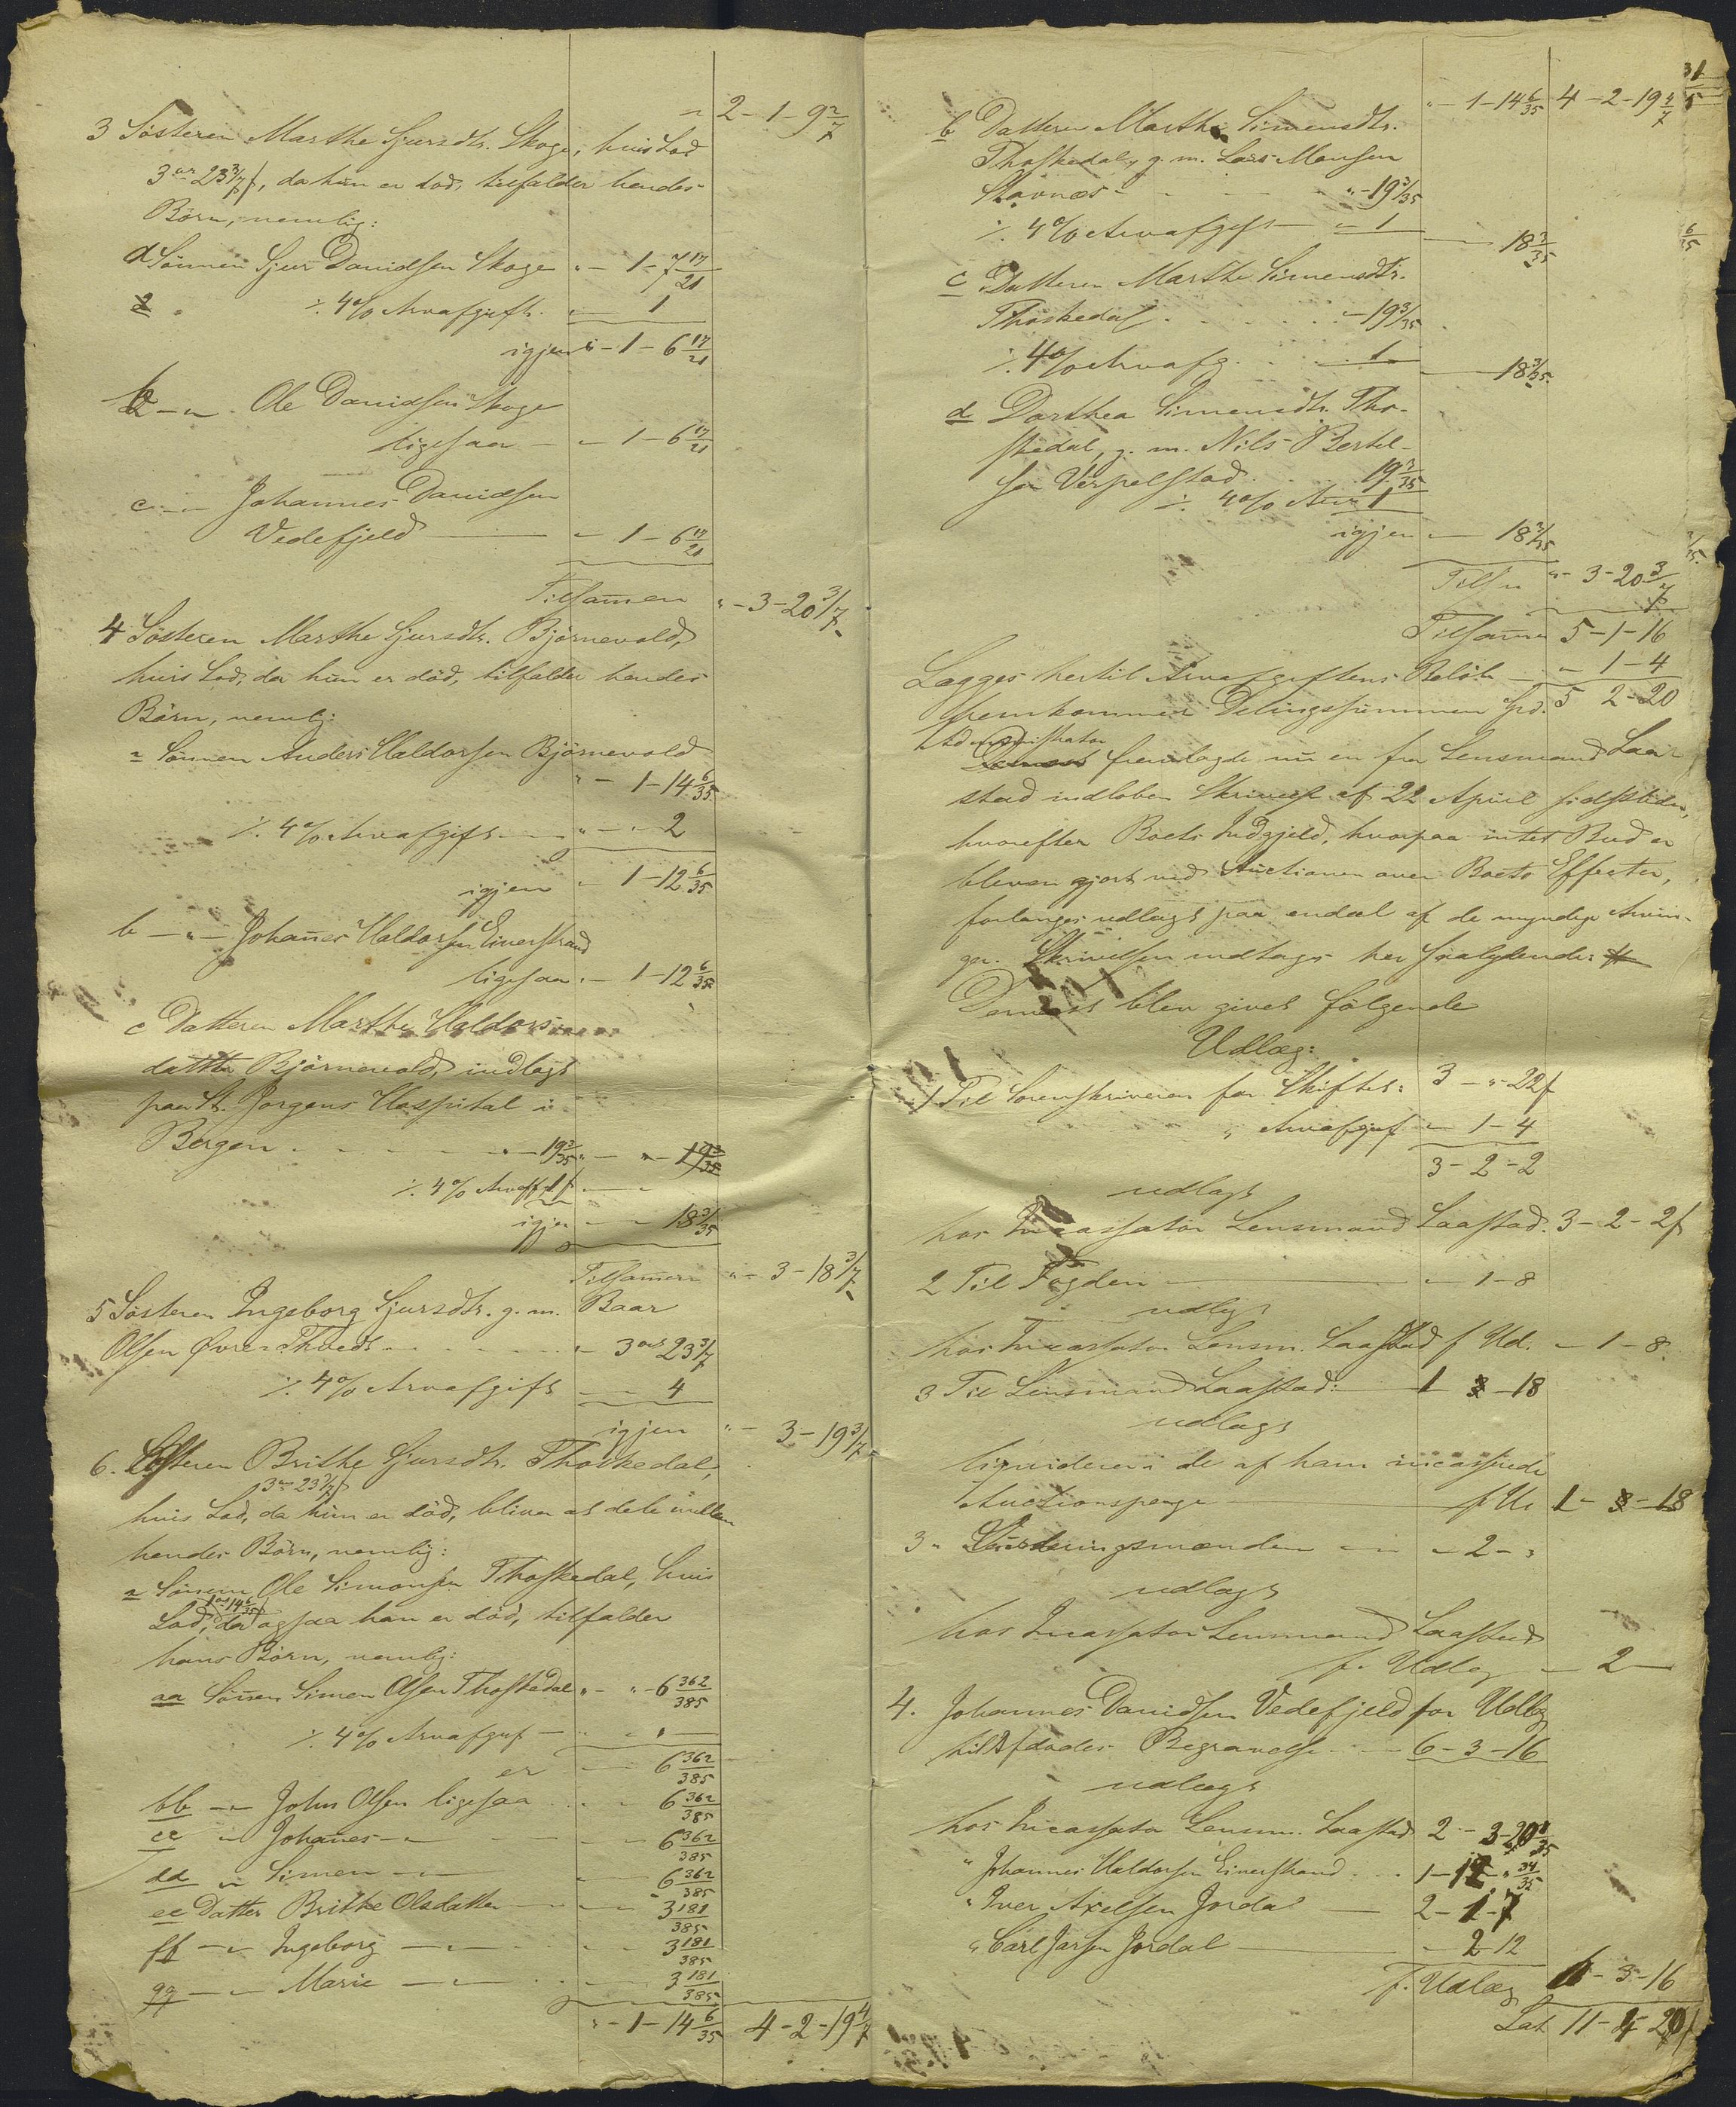 " 2 - 1 - 9 2/7
3 Søsteren Marthe Sjursdtr. Skoge, hvis Lod
3 ort 23 3/7 ß, da hun er død, tilfalder hendes
Børn, nemlig:
a Sønnen Sjur Davidsen Skoge " - 1 - 7 17/21
÷ 4% Arvafgift " - 1
igjen " - 1 - 6 17/21
b - " - Ole Davidsen Skoge
ligesaa - " - 1 - 6 17/21
c - " - Johannes Davidsen
Vedefjeld - " - 1 - 6 17/21
Tilsammen " - 3 - 20 3/7
4 Søsteren Marthe Sjursdtr. Bjørnevold,
hvis Lod, da hun er død, tilfalder hendes
Børn, nemlig:
a Sønnen Anders Haldorsen Bjørnevold
" - 1 - 14 6/35
÷ 4% Arvafgift " - " - 2
igjen " 1 - 12 6/35
b - " - Johannes Haldorsen Einerstrand
ligesaa " - 1 - 12 6/35
c Datteren Marthe Haldors-
datter Bjørnevold, indlagt
paa St. Jørgens Hospital i
Bergen " - 19 3/35 " - " - 19 3/35
÷ 4% Arvafg. 1 ß
igjen " - 18 3/35
Tilsammen " - 3 - 18 3/7
5 Søsteren Ingeborg Sjursdtr. g. m. Baar
Olsen Øvre-Thvedt " 3 ort 23 3/7
÷ 4% Arvafgift " 4
igjen " - 3 - 19 3/7
6. Søsteren Brithe Sjursdtr. Thoskedal,
3 ort 23 3/7 ß
hvis Lod, da hun er død, bliver at dele mellem
hendes Børn, nemlig:
a Sønnen Ole Simonsen Thoskedal, hvis
1 ort 14 6/35 ß
Lod, da ogsaa han er død, tilfalder
hans Børn, nemlig:
aa Sønnen Simen Olsen Thoskedal " - " - 6 362/385
÷ 4% Arvafgift - " "
er " 6 362/385
bb - " - John Olsen ligesaa " 6 362/385
cc " Johannes - " - 6 362/385
dd " Simen - " - 6 362/385
ee Datter Brithe Olsdatter 3 181/385
ff - " - Ingeborg - " - 3 181/385
gg - " - Marie - " - 3 181/385
" - 1 - 14 6/35 4 - 2 - 19 4/7
31
5
" - 1 - 14 6/35 4 - 2 - 19 4/7
b Datteren Marthe Simensdtr.
Thoskedal, g. m. Lars Monsen
Stavnæs " - 19 3/35
÷ 4% Arvafgift - " 1 18 3/35
c Datteren Marthe Simensdtr.
Thoskedal " - 19 3/35
÷ 4% Arvafg. 1 18 3/35
d Dorthea Simensdtr. Tho-
skedal, g. m. Nils Bertel-
sen Vespelstad 19 3/35
÷ 4% Arv 1
igjen " 18 3/35
Tils. " - 3 - 20 3/7
Tilsammen 5 - 1 - 16
Lægges hertil Arvafgiftens Beløb " 1 - 4
fremkommer Delingssummen Spd. 5 2 - 20
Administrator
fremlagde nu en fra Lensmand Laa-
stad indløben Skrivelse af 22 April sidstleden,
hvorefter Boets Indgjeld, hvorpaa intet Bud er
bleven gjort ved Auctionen over Boets Effecter,
forlanges udlagt paa endel af de myndige Arvin-
ger. Skrivelsen indtages her saalydende:
Dernæst blev givet følgende
Udlæg:
1 Til Sorenskriveren for Skiftet: 3 - " - 22 ß
" Arvafgift " 1 - 4
3 - 2 - 2
udlagt
hos Incassator Lensmand Laastad 3 - 2 - 2 ß
2 Til Fogden " 1 - 8
udlagt
hos Incassator Lensm. Laastad f Ud. " 1 - 8
3 Til Lensmand Laastad: 1 3 - 18
udlagt
liqviderer i de af ham incasserede
Auctionspenge f. U. 1 - 3 - 18
3. Vurderingsmændene " 2 - "
udlagt
hos Incassator Lensmand Laastad
f. Udlæg " 2 -
4. Johannes Davidsen Vedefjeld for Udlæg
til Afdødes Begravelse 6 - 3 - 16
udlagt
hos Incassator Lensm. Laastad 2 - 3 - 20 1/35
" Johannes Haldorsen Einerstrand 1 - 12 34/35
" Iver Axelsen Jordal 2 - 1 - 7
" Carl Jarsen Jordal " 2 12
f. Udlæg 6 - 3 - 16
Lat. 11 - 4 20 ß